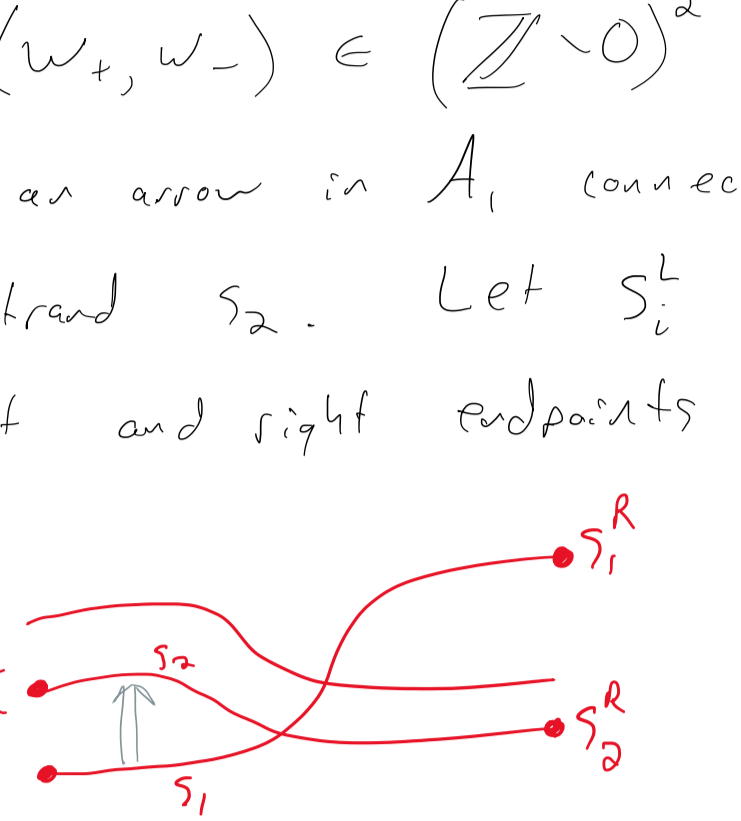 (w₊, w₋) ∈ (ℤ∖0)²
an arrow in A₁ connec
trand s₂. Let sᵢᴸ
t and right endpoints
s₁ᴿ
s₂
s₂ᴿ
s₁